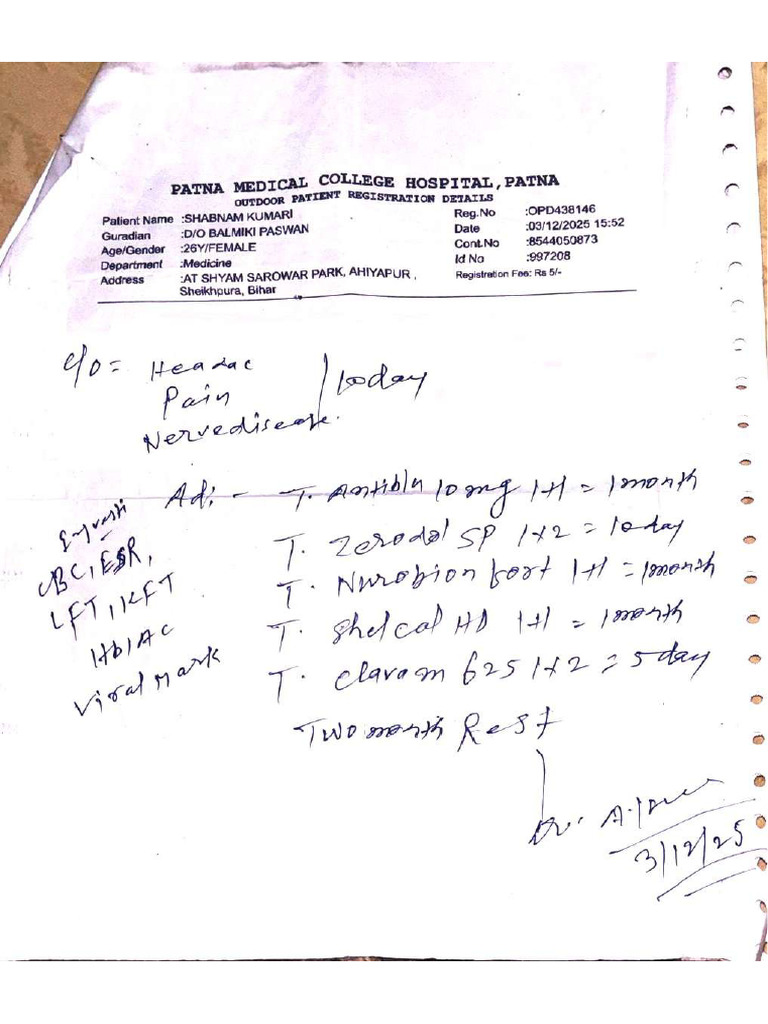 PATNA MEDICAL COLLEGE HOSPITAL, PATNA
OUTDOOR PATIENT REGISTRATION DETAILS
Patient Name :SHABNAM KUMARI Reg.No :OPD438146
Guradian :D/O BALMIKI PASWAN Date :03/12/2025 15:52
Age/Gender :26Y/FEMALE Cont.No :8544050873
Department :Medicine Id No :997208
Address :AT SHYAM SAROWAR PARK, AHIYAPUR, Registration Fee: Rs 5/-
Sheikhpura, Bihar
c/o = Headac
Pain / 10day
Nervedisease.
Adi - T. 10mg 1+1 = 1month
T. Zerodol SP 1+2 = 10day
CBC, ESR,
T. Nurobion fort 1+1 = 1month
LFT, KFT
T. Shelcal HD 1+1 = 1month
Hb1AC
T. Clavam 625 1+2 = 5day
Viral Mark
Two month Rest
Dr.
3/12/25